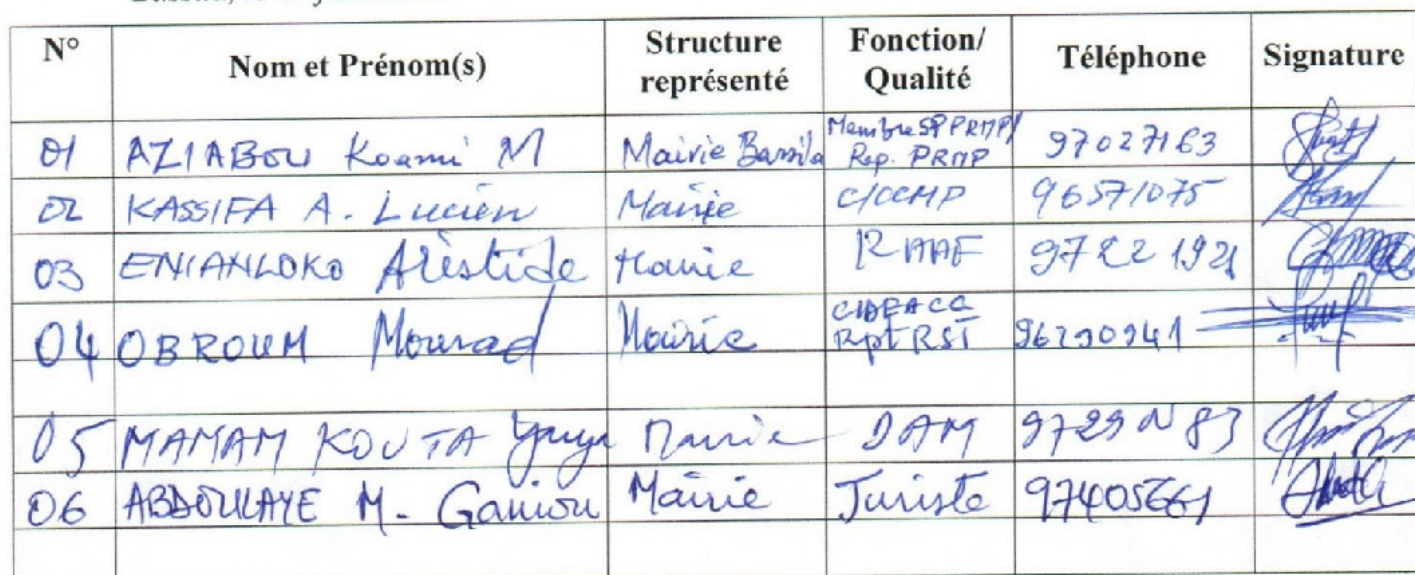 N° Nom et Prénom(s) Structure représenté Fonction/ Qualité Téléphone Signature
01 AZIABOU Koami M Mairie Bassila Membre SP PRMP/ Rep. PRMP 97027163
02 KASSIFA A. Lucien Mairie C/CCMP 96571075
03 ENIANLOKO Aristide Mairie 9722 1921
04 OBROUM Mourad Mairie Rpt RST 96290941
05 MAMAM KOUTA Mairie DAM
06 ABDOULAYE M. Ganiou Mairie Juriste 97405661